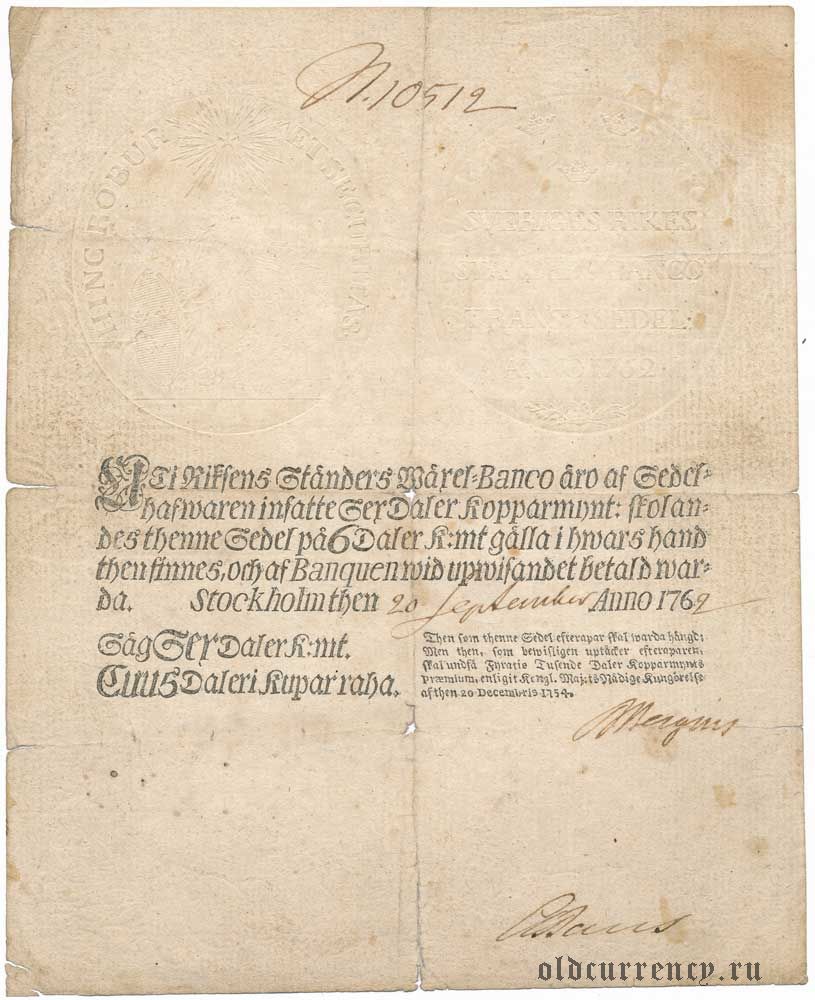 N. 10512
HINC ROBUR ET SECURITAS
SVERIGES RIKES
STÄNDERS BANCO
TRANSP. SEDEL.
ANNO 1762
UTi Riksens Ständers Wäxel-Banco äro af Sedel-
hafwaren insatte Sex Daler Kopparmynt: skolan-
des thenne Sedel på 6 Daler K:mt gälla i hwars hand
then finnes, och af Banquen wid upwisandet betald war-
da. Stockholm then 20 September Anno 1762
Säg Sex Daler K:mt.
Cuus Daleri Kupar raha.
Then som thenne Sedel efterapar skal warda hängd;
Men then, som bewisligen uptäcker efteraparen,
skal undfå Fyratio Tusende Daler Kopparmynts
Præmium, enligit Kongl. Maj:ts Nådige Kungörelse
af then 20 Decembris 1754.
Bergius
oldcurrency.ru